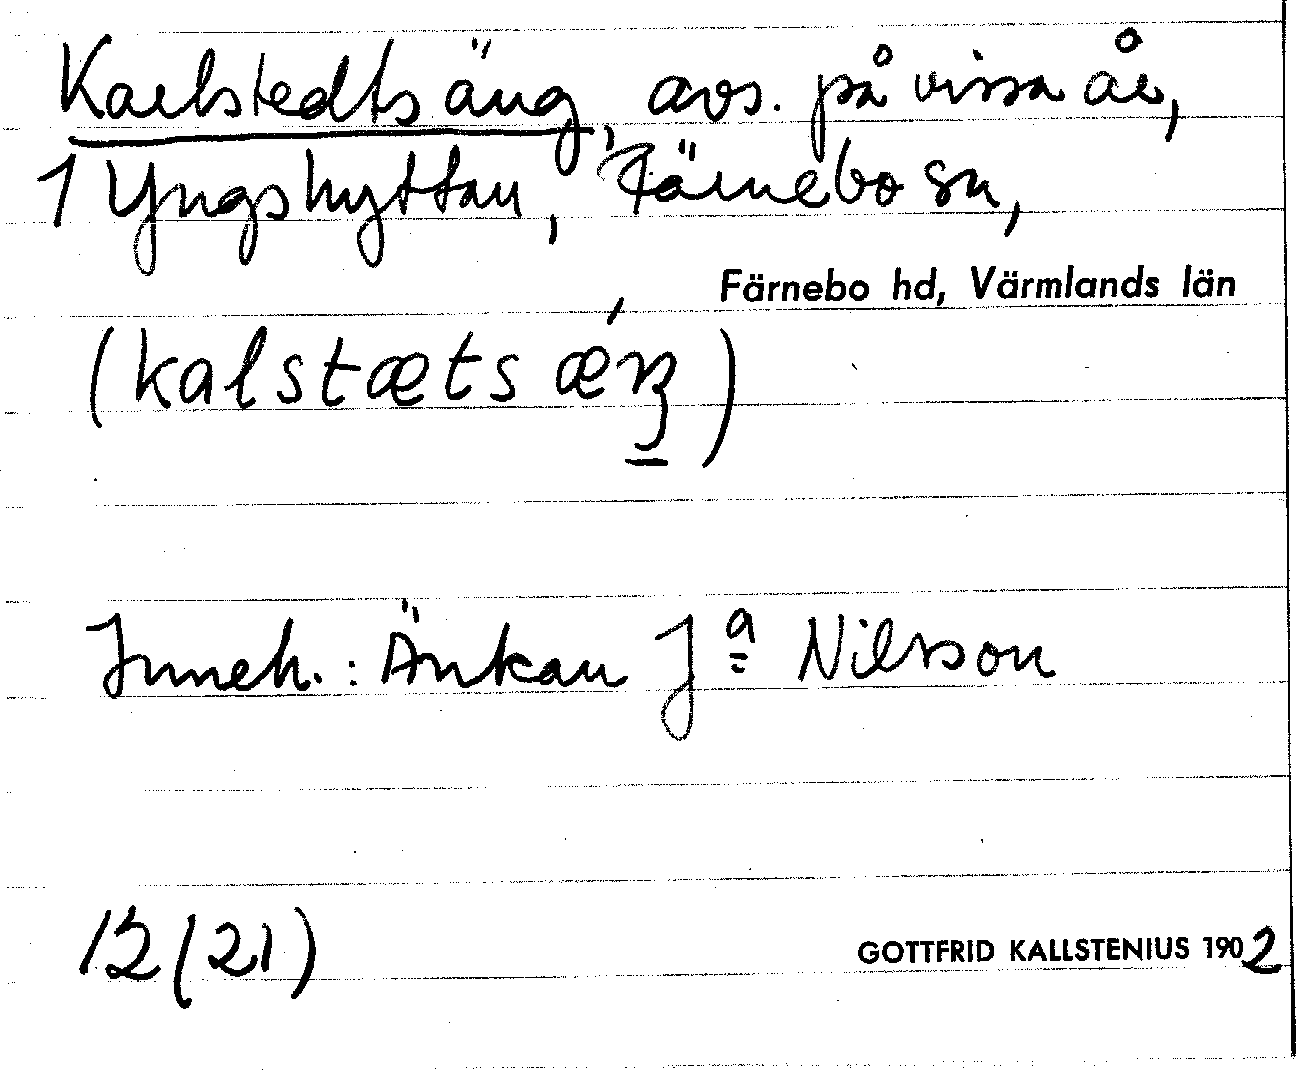 Karlstedts äng, avs. på vissa år,
1 Yngshyttan, Färnebo sn,
Färnebo hd, Värmlands län
(kalstætsǽŋ)
Inneh.: Änkan Jª Nilsson
12(21)
GOTTFRID KALLSTENIUS 1902